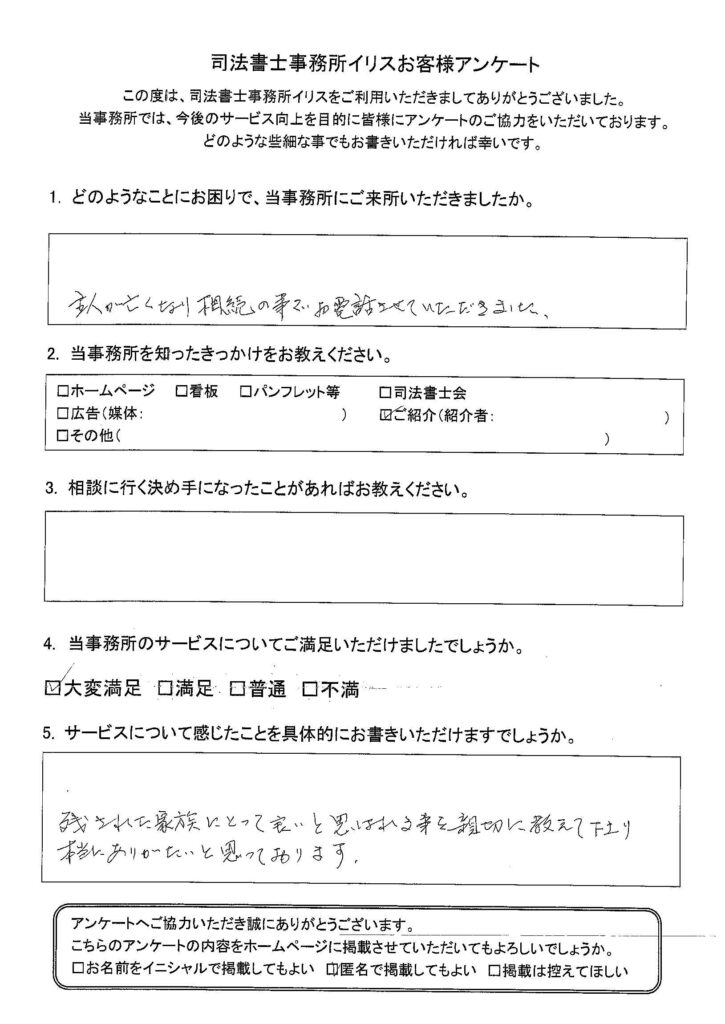 司法書士事務所イリスお客様アンケート
この度は、司法書士事務所イリスをご利用いただきましてありがとうございました。
当事務所では、今後のサービス向上を目的に皆様にアンケートのご協力をいただいております。
どのような些細な事でもお書きいただければ幸いです。
1. どのようなことにお困りで、当事務所にご来所いただきましたか。
主人が亡くなり相続の事でお電話させていただきました、
2. 当事務所を知ったきっかけをお教えください。
□ホームページ □看板 □パンフレット等 □司法書士会
□広告(媒体: ) ☑ご紹介(紹介者: )
□その他( )
3. 相談に行く決め手になったことがあればお教えください。
4. 当事務所のサービスについてご満足いただけましたでしょうか。
☑大変満足 □満足 □普通 □不満
5. サービスについて感じたことを具体的にお書きいただけますでしょうか。
残された家族にとって良いと思はれる事を親切に教えて下さり
本当にありがたいと思っております.
アンケートへご協力いただき誠にありがとうございます。
こちらのアンケートの内容をホームページに掲載させていただいてもよろしいでしょうか。
□お名前をイニシャルで掲載してもよい ☑匿名で掲載してもよい □掲載は控えてほしい